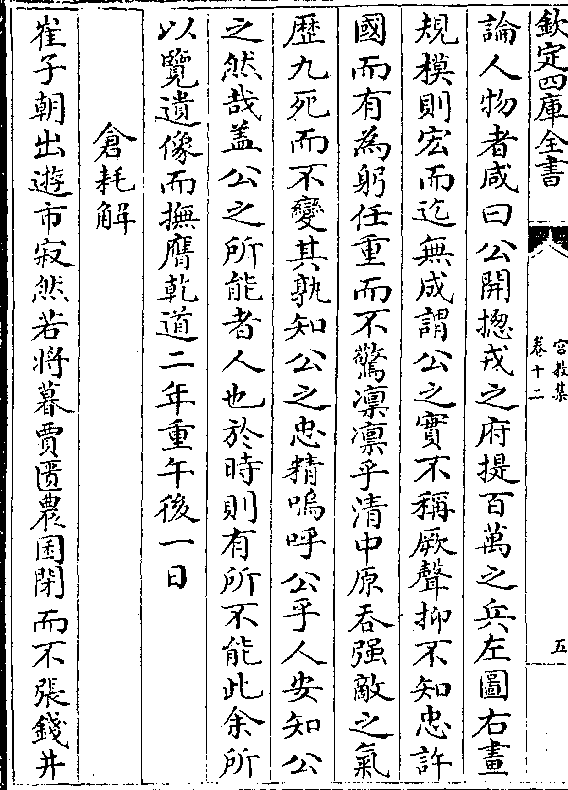 欽定四庫全書
宮教集
卷十二
五
論人物者咸曰公開揔戎之府提百萬之兵左圖右畫
規模則宏而迄無成謂公之實不稱厥聲抑不知忠許
國而有為躬任重而不驚凛凛乎清中原吞强敵之氣
歷九死而不變其孰知公之忠精嗚呼公乎人安知公
之然哉盖公之所能者人也於時則有所不能此余所
以覽遺像而撫膺乾道二年重午後一日
倉耗解
崔子朝出遊市寂然若將暮賈匱農囷閉而不張錢井